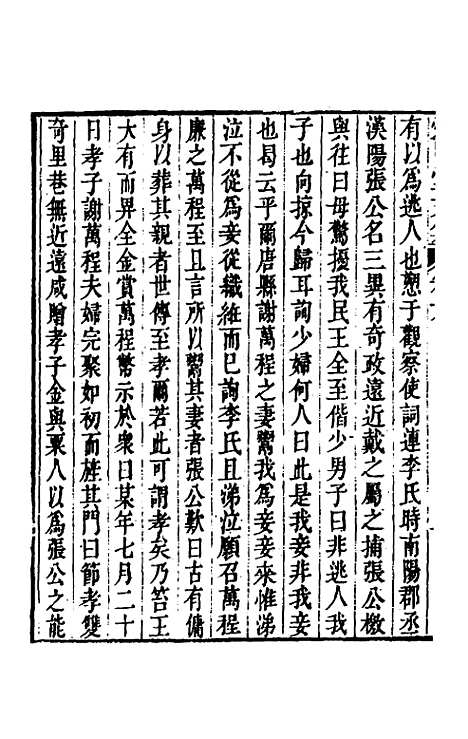 有以為逃人也愬于觀察使詞連李氏時南陽郡丞
漢陽張公名三異有奇政遠近戴之屬之捕張公檄
與往曰毋驚擾我民王全至偕少男子曰非逃人我
子也向掠今歸耳詢少婦何人曰此是我妾非我妾
也曷云乎爾唐縣謝萬程之妻鬻我為妾妾來惟涕
泣不從為妾從織紝而已詢李氏且涕泣願召萬程
廉之萬程至且言所以鬻其妻者張公歎曰古有傭
身以葬其親者世傳至孝爾若此可謂孝矣乃笞王
大有而畀全金賞萬程幣示於衆曰某年七月二十
日孝子謝萬程夫婦完聚如初而旌其門曰節孝雙
奇里巷無近遠咸贈孝子金與粟人以為張公之能